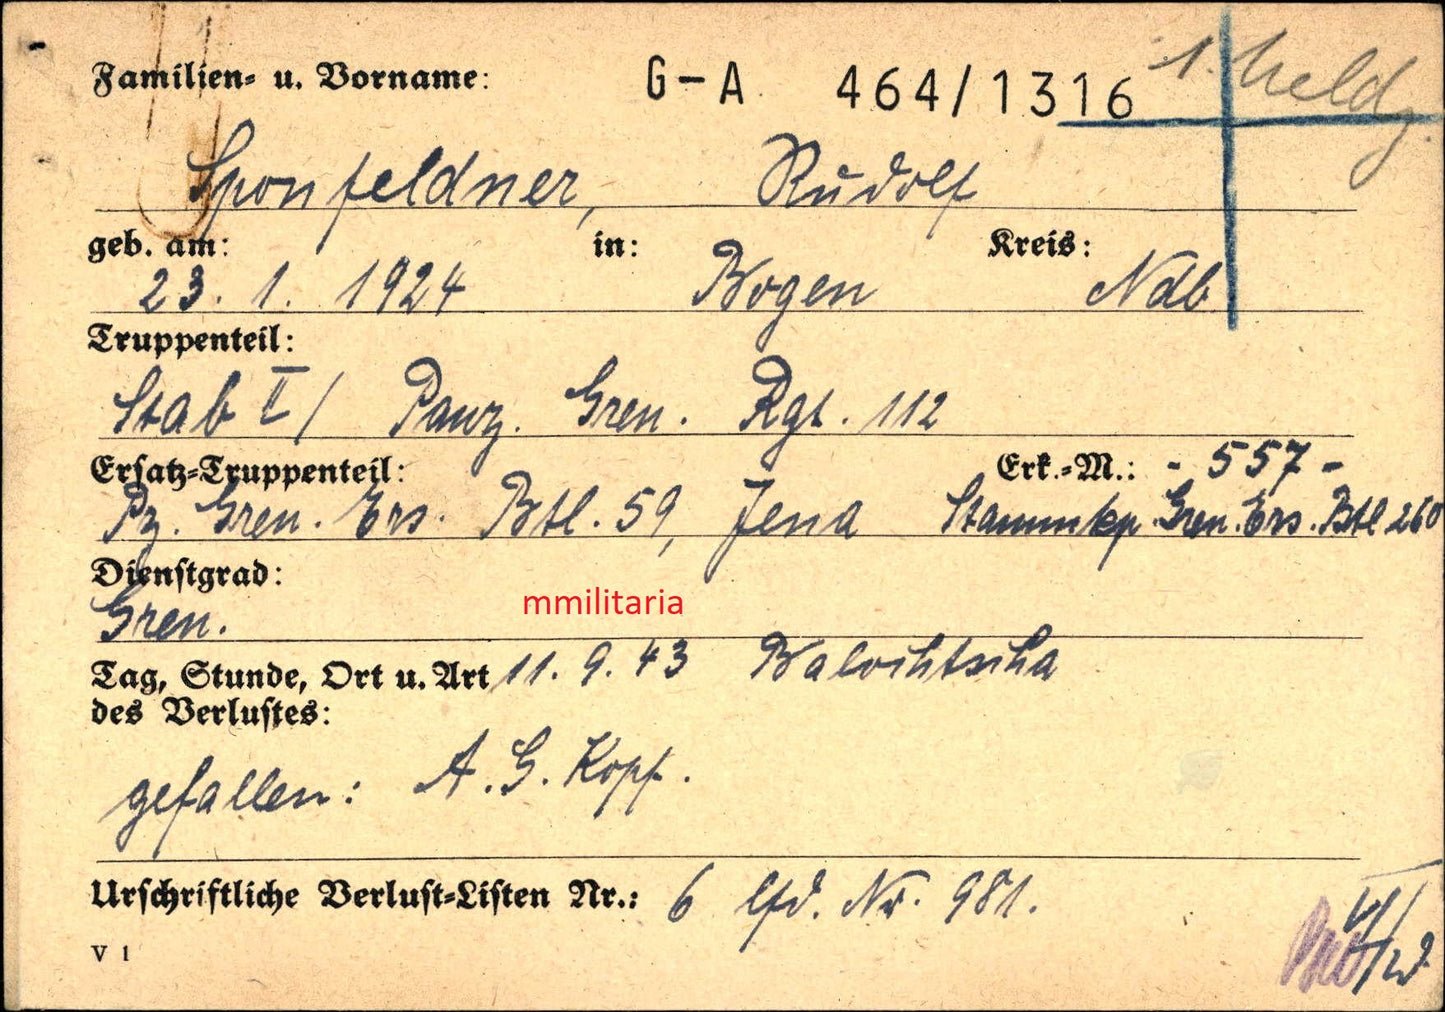 Familien- u. Vorname: G-A 464/1316 1. Meldg.
Sponfeldner, Rudolf
geb. am: in: Kreis:
23. 1. 1924 Bogen Ndb
Truppenteil:
Stab II / Panz. Gren. Rgt. 112
Ersatz-Truppenteil: Erk.-M.: - 557 -
Pz. Gren. Ers. Btl. 59, Jena Stammkp. Gren. Ers. Btl 260
Dienstgrad:
Gren.
mmilitaria
Tag, Stunde, Ort u. Art 11. 9. 43
des Verlustes:
gefallen: A. G. Kopf.
Urschriftliche Verlust-Listen Nr.: 6 lfd. Nr. 981.
V 1